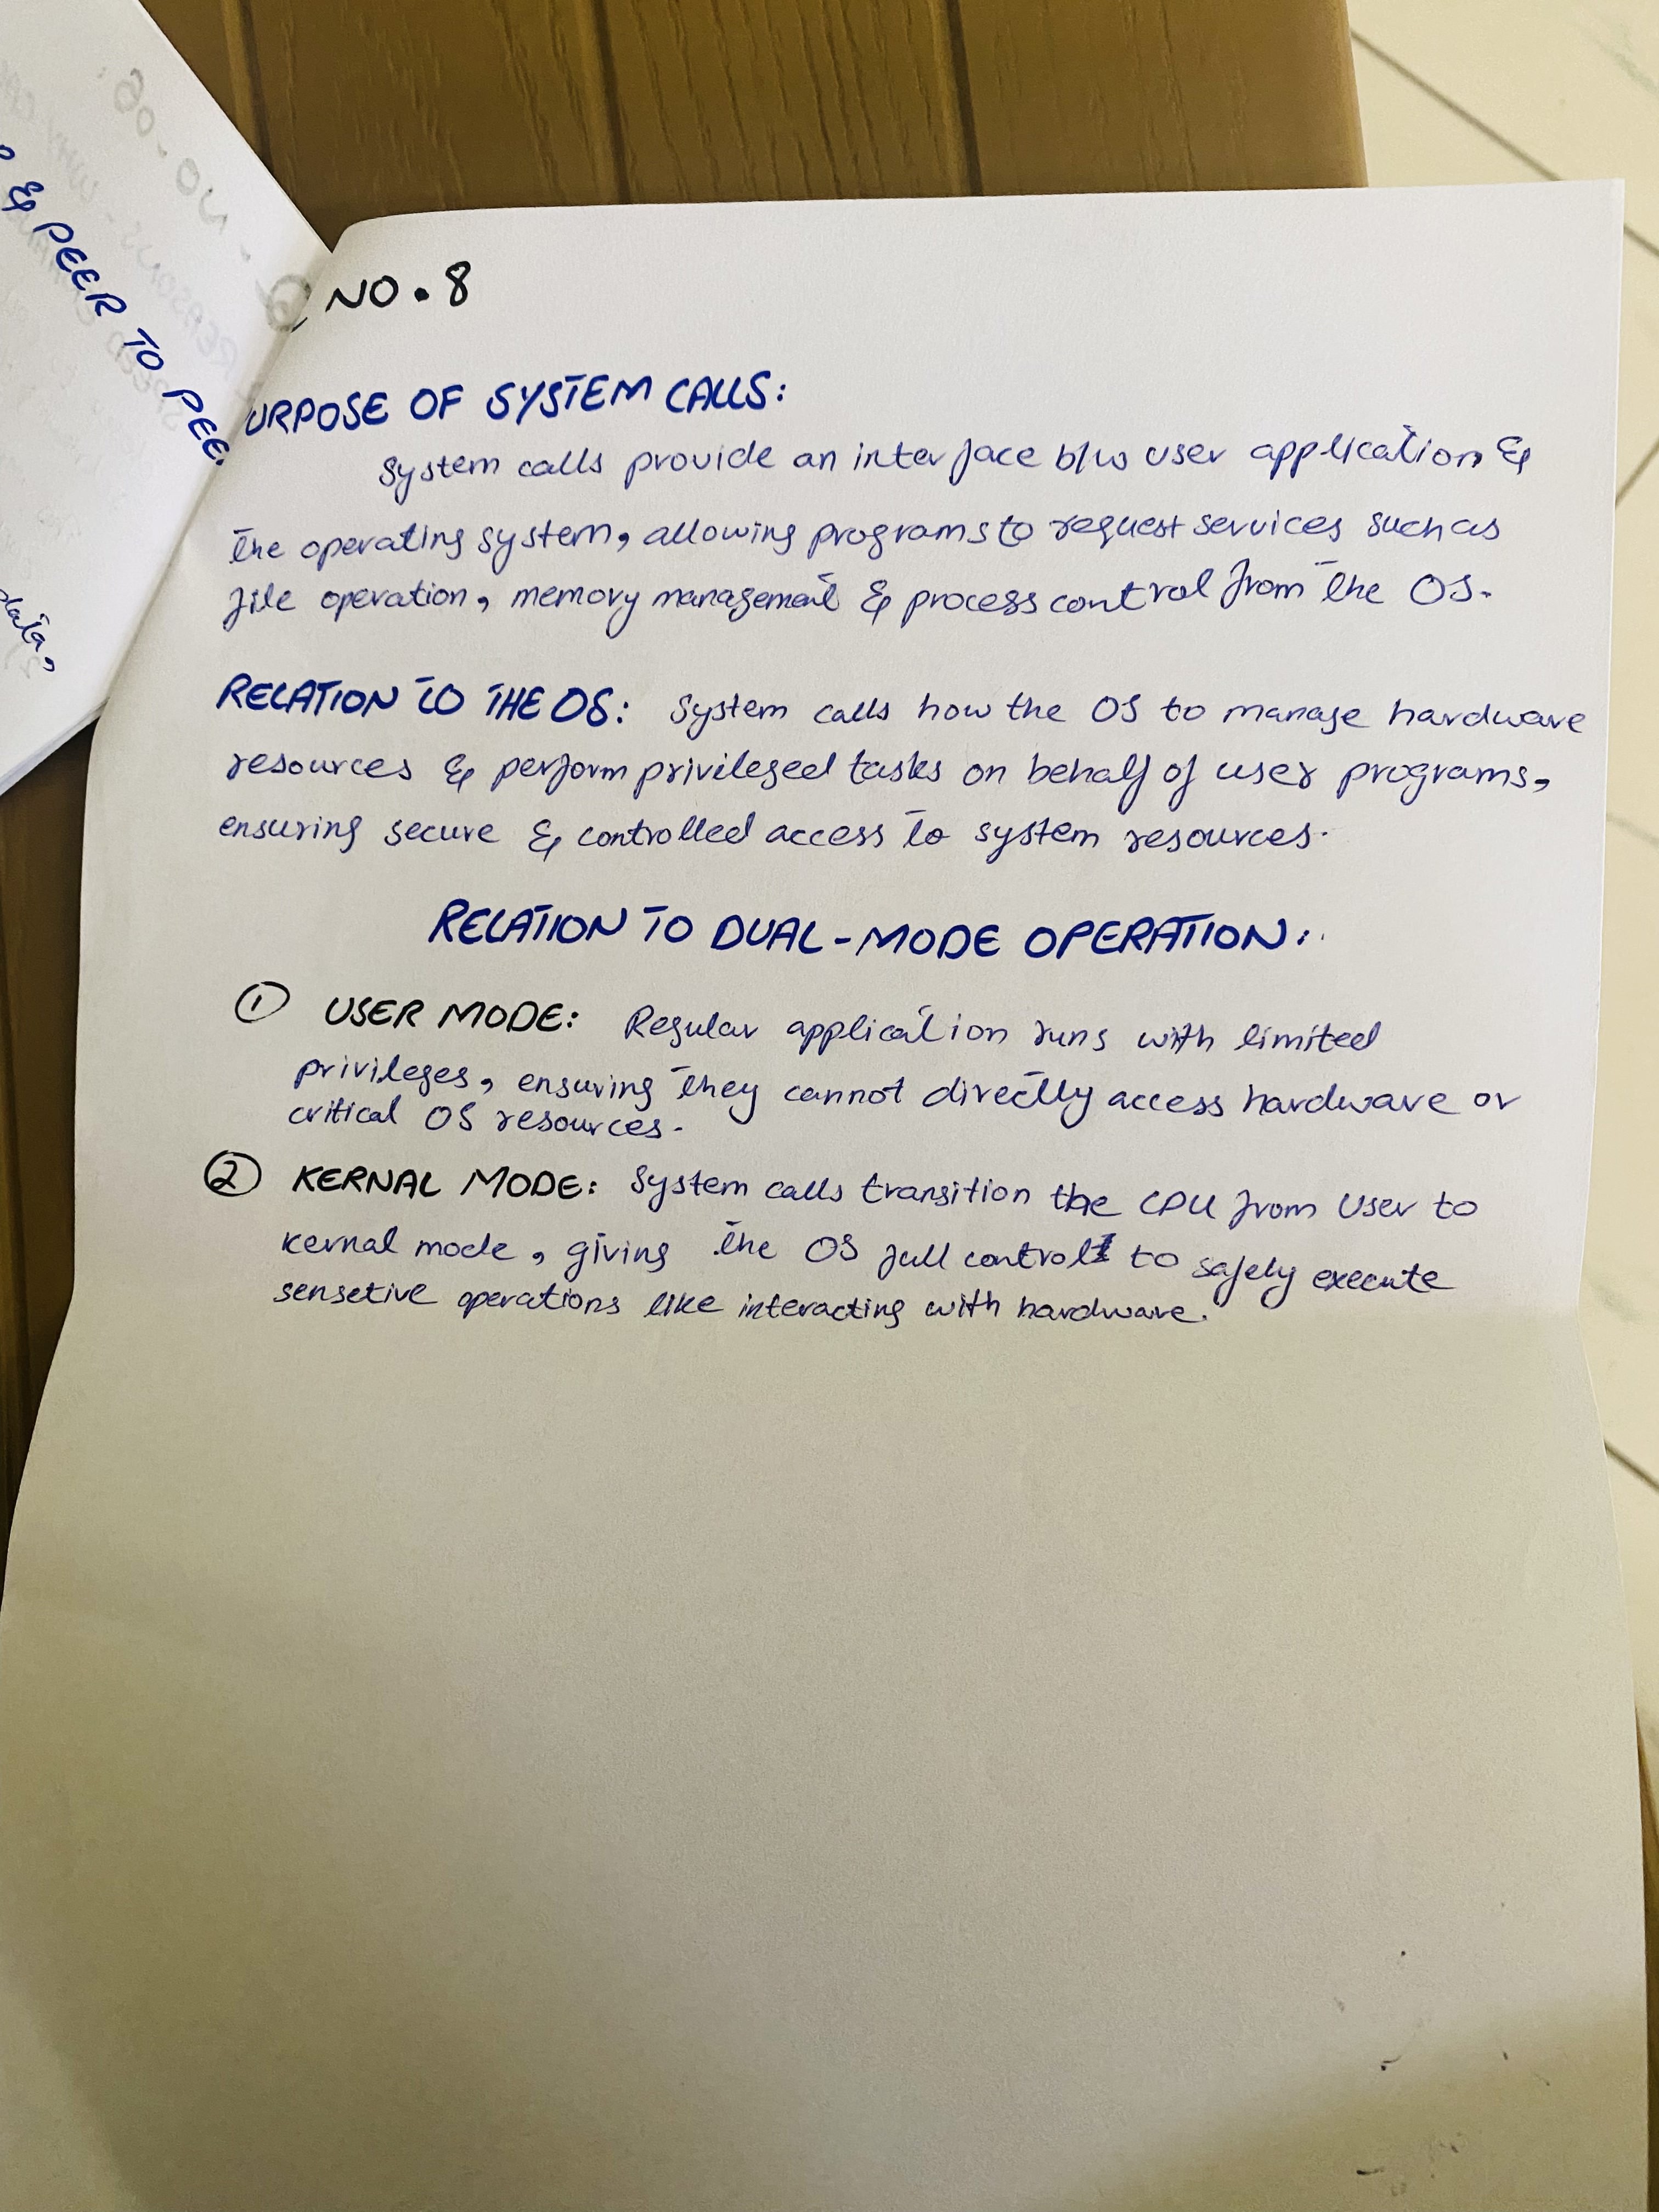 & PEER TO PEE
data,
NO. 8
URPOSE OF SYSTEM CALLS:
System calls provide an interface b/w user application &
the operating system, allowing programs to request services such as
file operation, memory management & process control from the OS.
RELATION TO THE OS: System calls how the OS to manage hardware
resources & perform privileged tasks on behalf of user programs,
ensuring secure & controlled access to system resources.
RELATION TO DUAL-MODE OPERATION:
① USER MODE: Regular application runs with limited
privileges, ensuring they cannot directly access hardware or
critical OS resources.
② KERNAL MODE: System calls transition the CPU from User to
kernal mode, giving the OS full control to safely execute
sensetive operations like interacting with hardware.